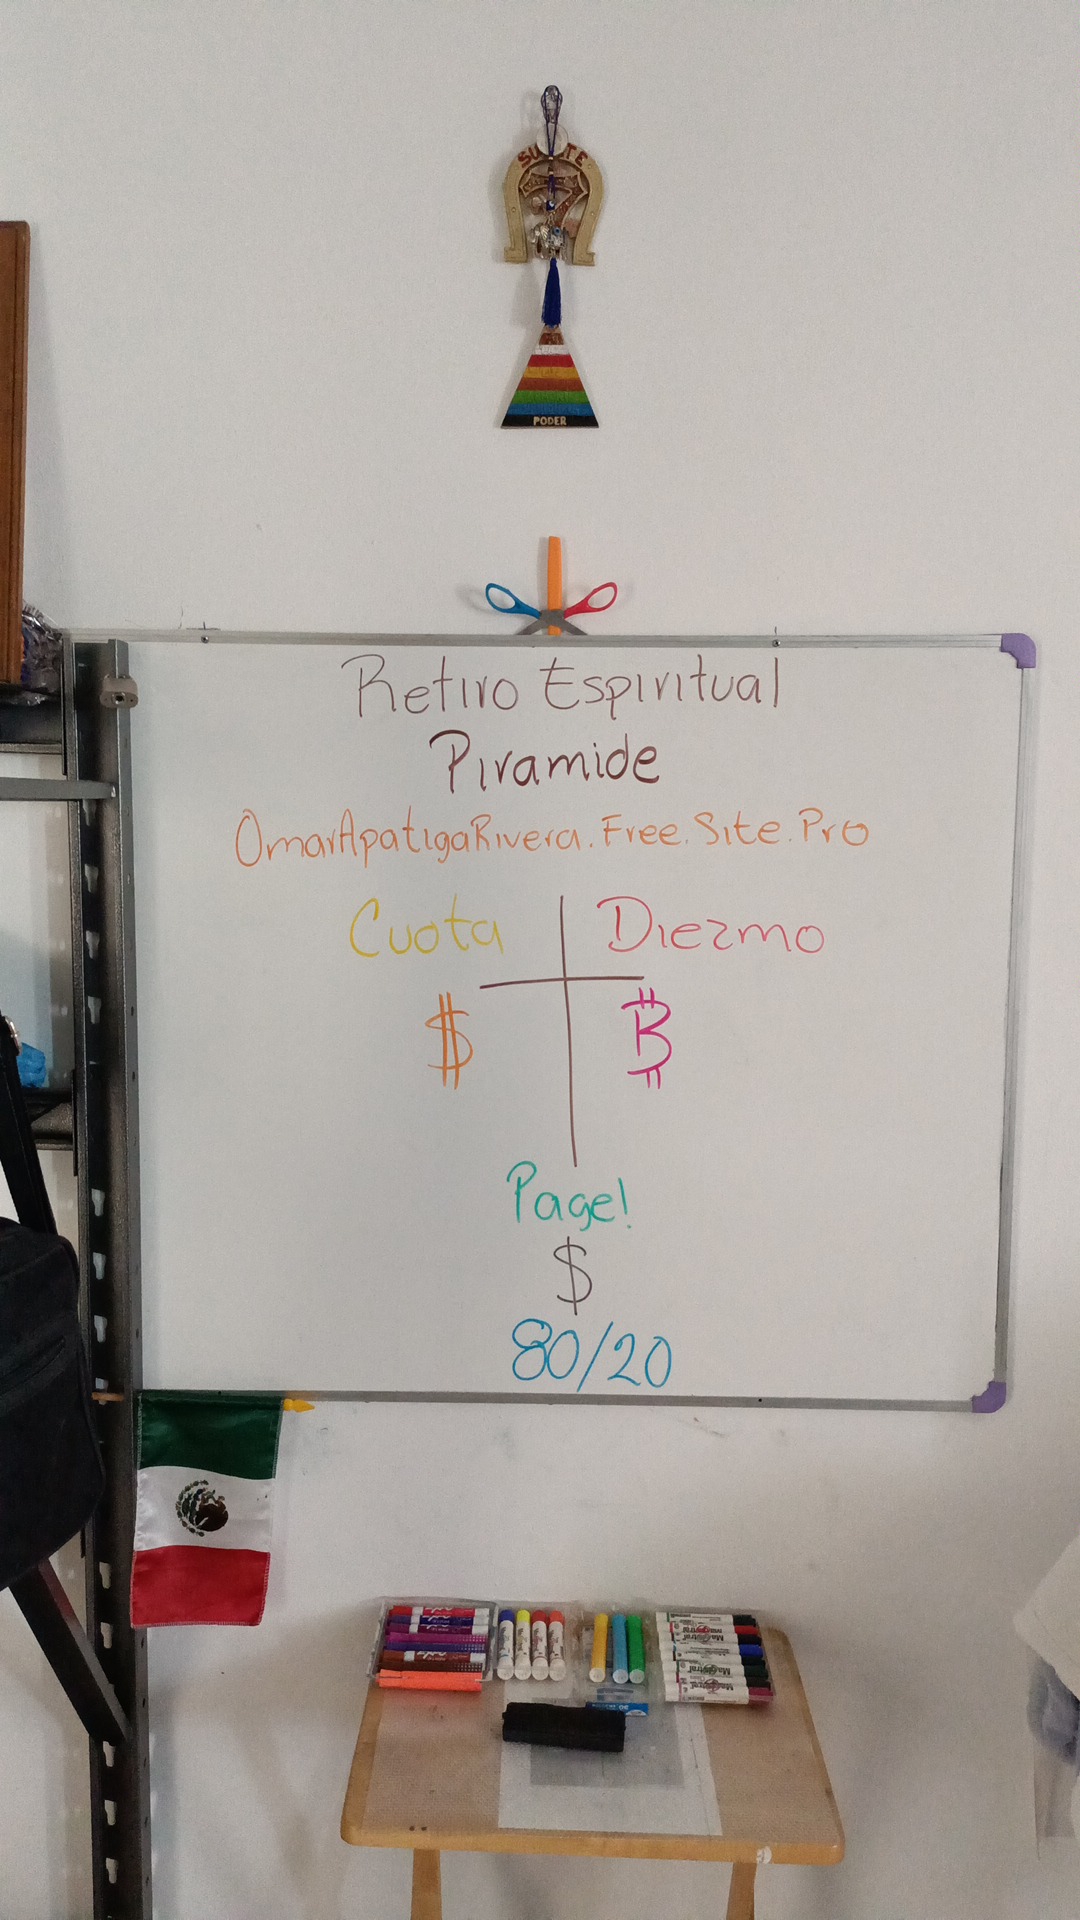 SUERTE
PODER
Retiro Espiritual
Piramide
OmarApatigaRivera.Free.Site.Pro
Cuota Diezmo
$ ₿
Page!
$
80/20
Magistral
Magistral
Magistral